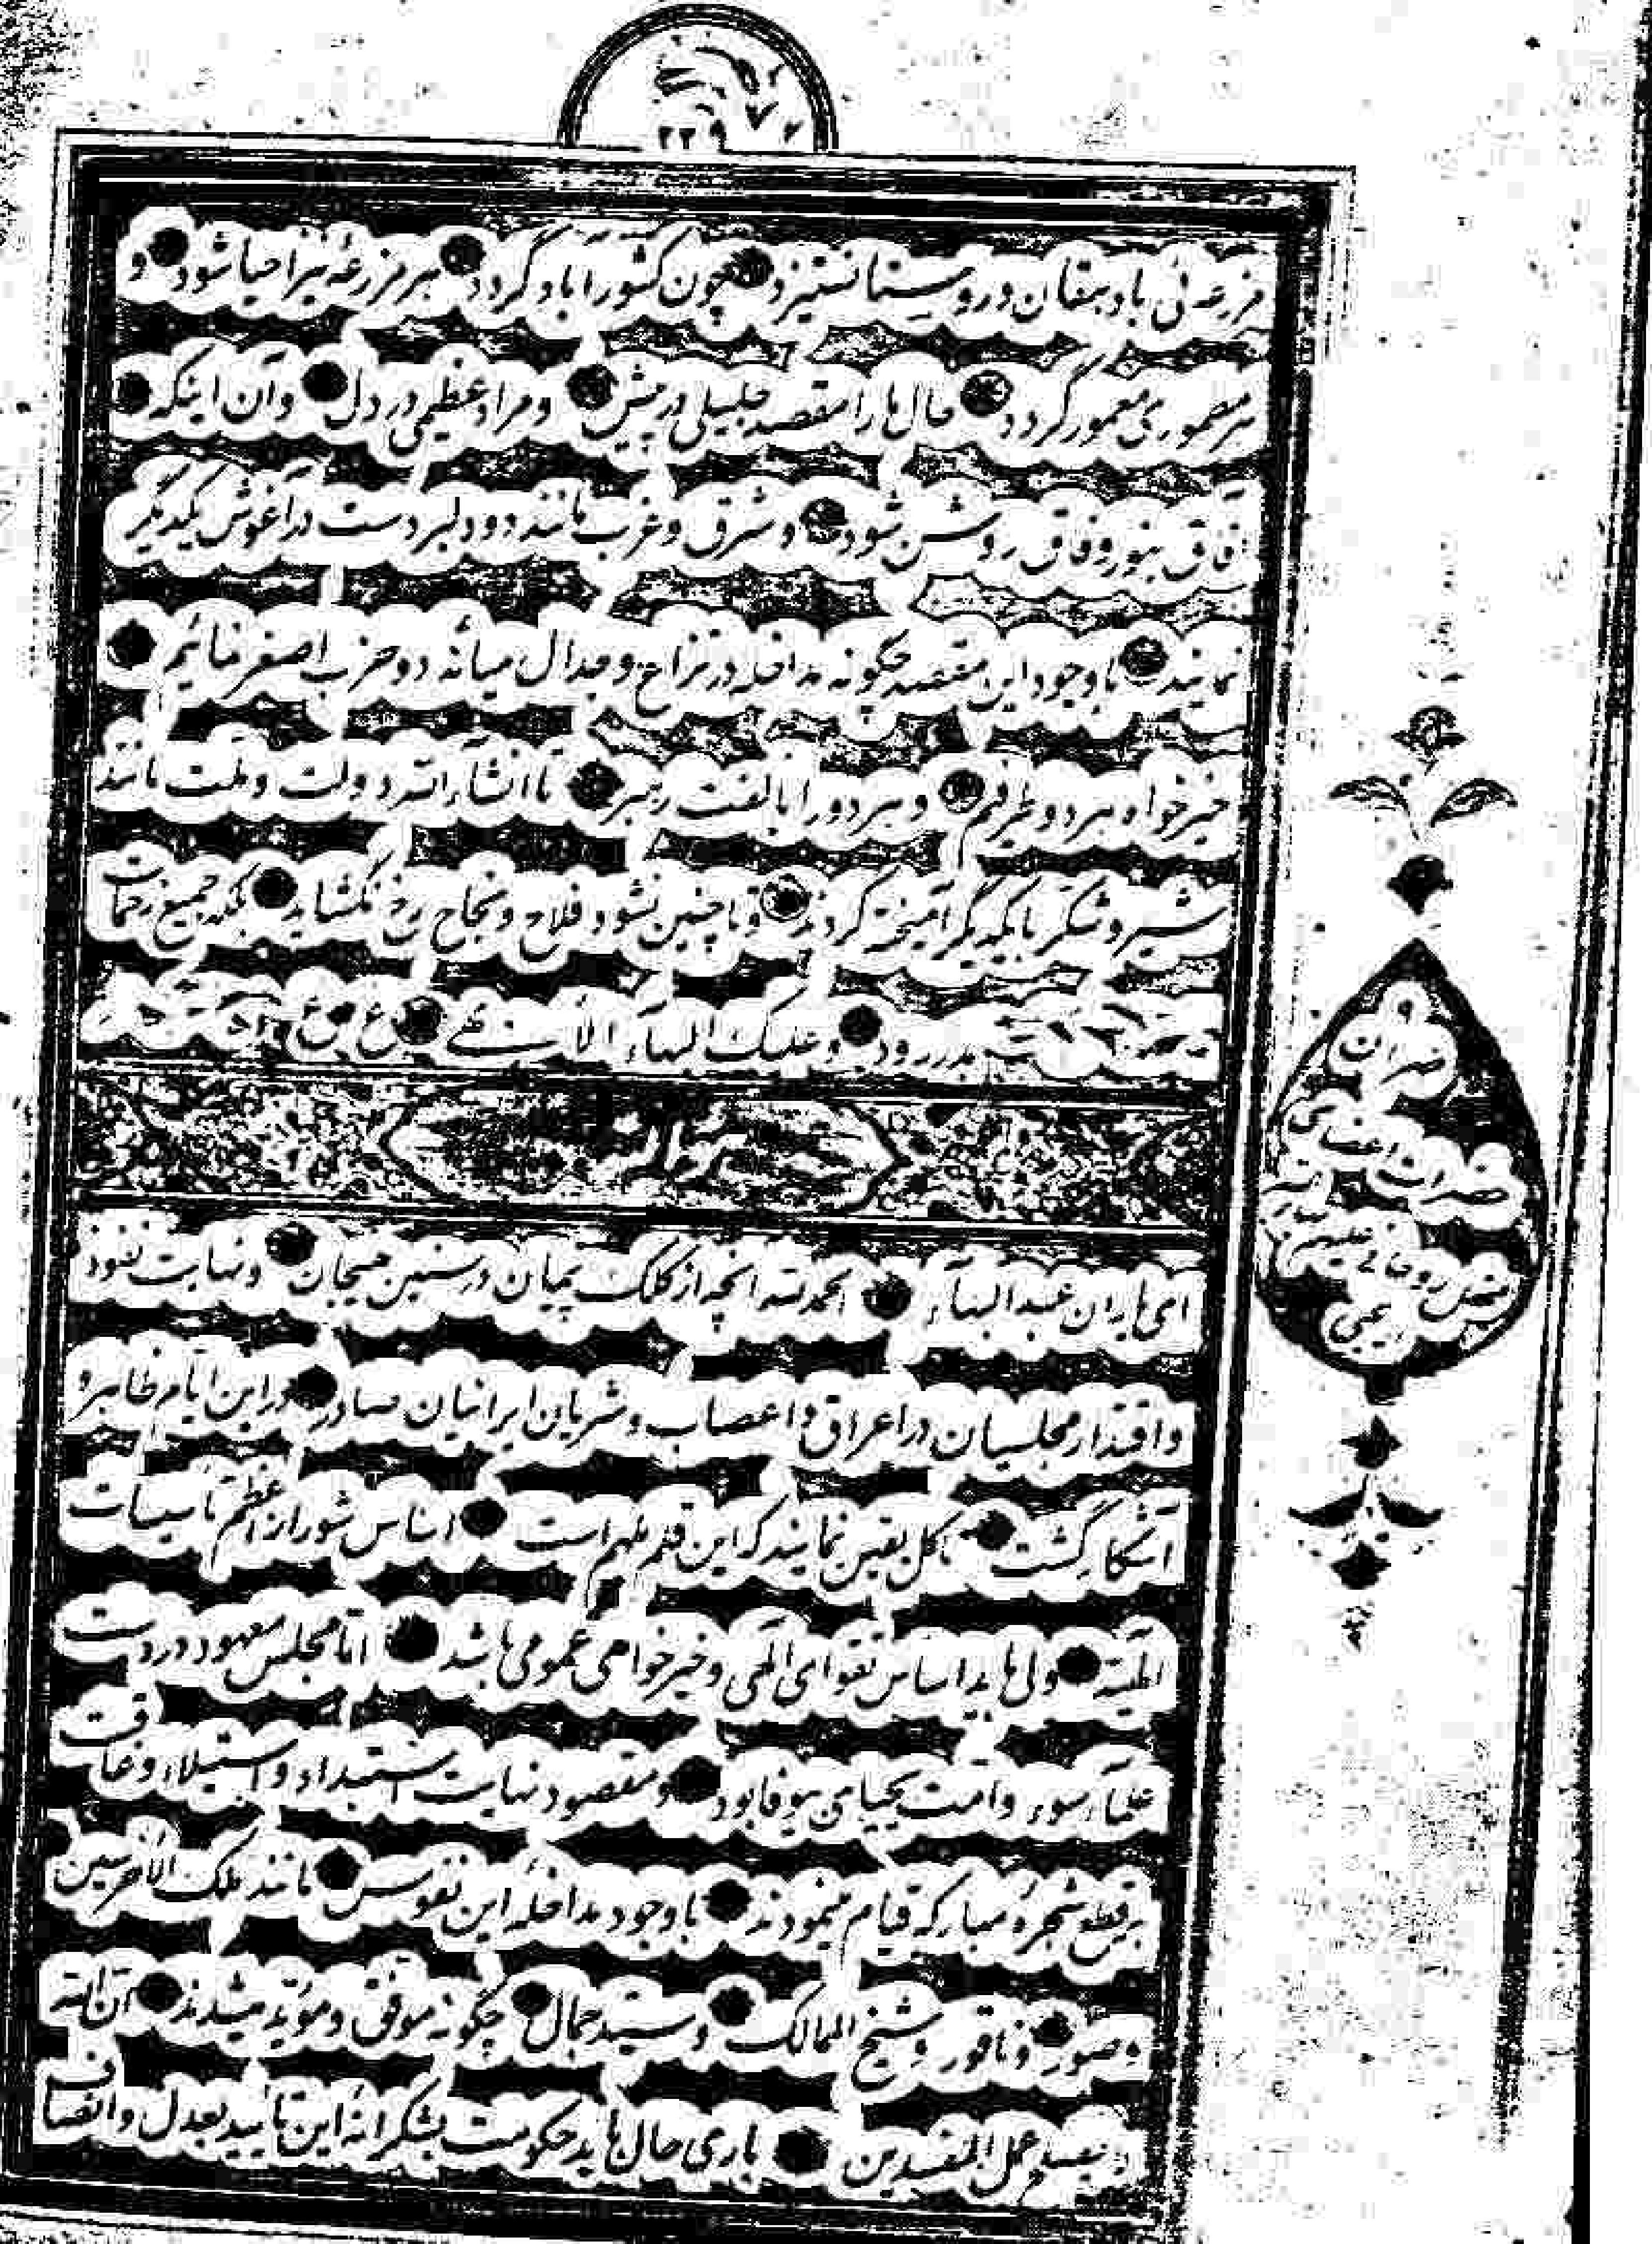 ۲۲۹
مزرعه ئی با دهقان و روستا نستیزد چون کشور آباد گردد هر مزرعه نیز احیا شود و
هر مطموری معمور گردد حال ما را مقصد جلیلی در پیش و مراد عظیمی در دل و آن اینکه
آفاق بنور وفاق روشن شود و شرق و غرب مانند دو دلبر دست در آغوش یکدیگر
نمایند با وجود این مقصد چگونه مداخله در نزاع و جدال میانه دو حزب اصغر نمائیم
خیرخواه هر دو طرفیم و هر دو را بالفت رهبر تا انشاءالله دولت و ملت مانند
شیر و شکر با یکدیگر آمیخته گردند و تا چنین نشود فلاح و نجاح رخ نگشاید بلکه جمیع زحمات
بهدر رود و علیک البهآء الأبهی ع ع
هوالله
طهران
حضرات اعضای
محفل روحانی علیهم
ای یاران عبدالبهآء الحمدلله آنچه از کلک پیمان در سنین هیجان و نهایت نفوذ
و اقتدار مجلسیان در اعراق و اعصاب و شریان ایرانیان صادر در این ایام ظاهر و
آشکار گشت تا کل یقین نمایند که این قلم ملهم است اساس شور از اعظم تأسیسات
الهیّه ولی باید اساس تقوای الهی و خیرخواهی عمومی باشد امّا مجلس معهود در دست
علمآء سوء و امّت یحیای بیوفا بود و مقصود نهایت استبداد و استیلاء و عاقبت
بر قطع شجرهٔ مبارکه قیام مینمودند با وجود مداخلهٔ این نفوس مانند ملک الأخرسین
و صور و ناقور و شیخ الممالک و سید جمال چگونه موفق و مؤید میشدند ان الله
لا یصلح عمل المفسدین باری حال باید حکومت بشکرانهٔ این تأیید بعدل و انصاف